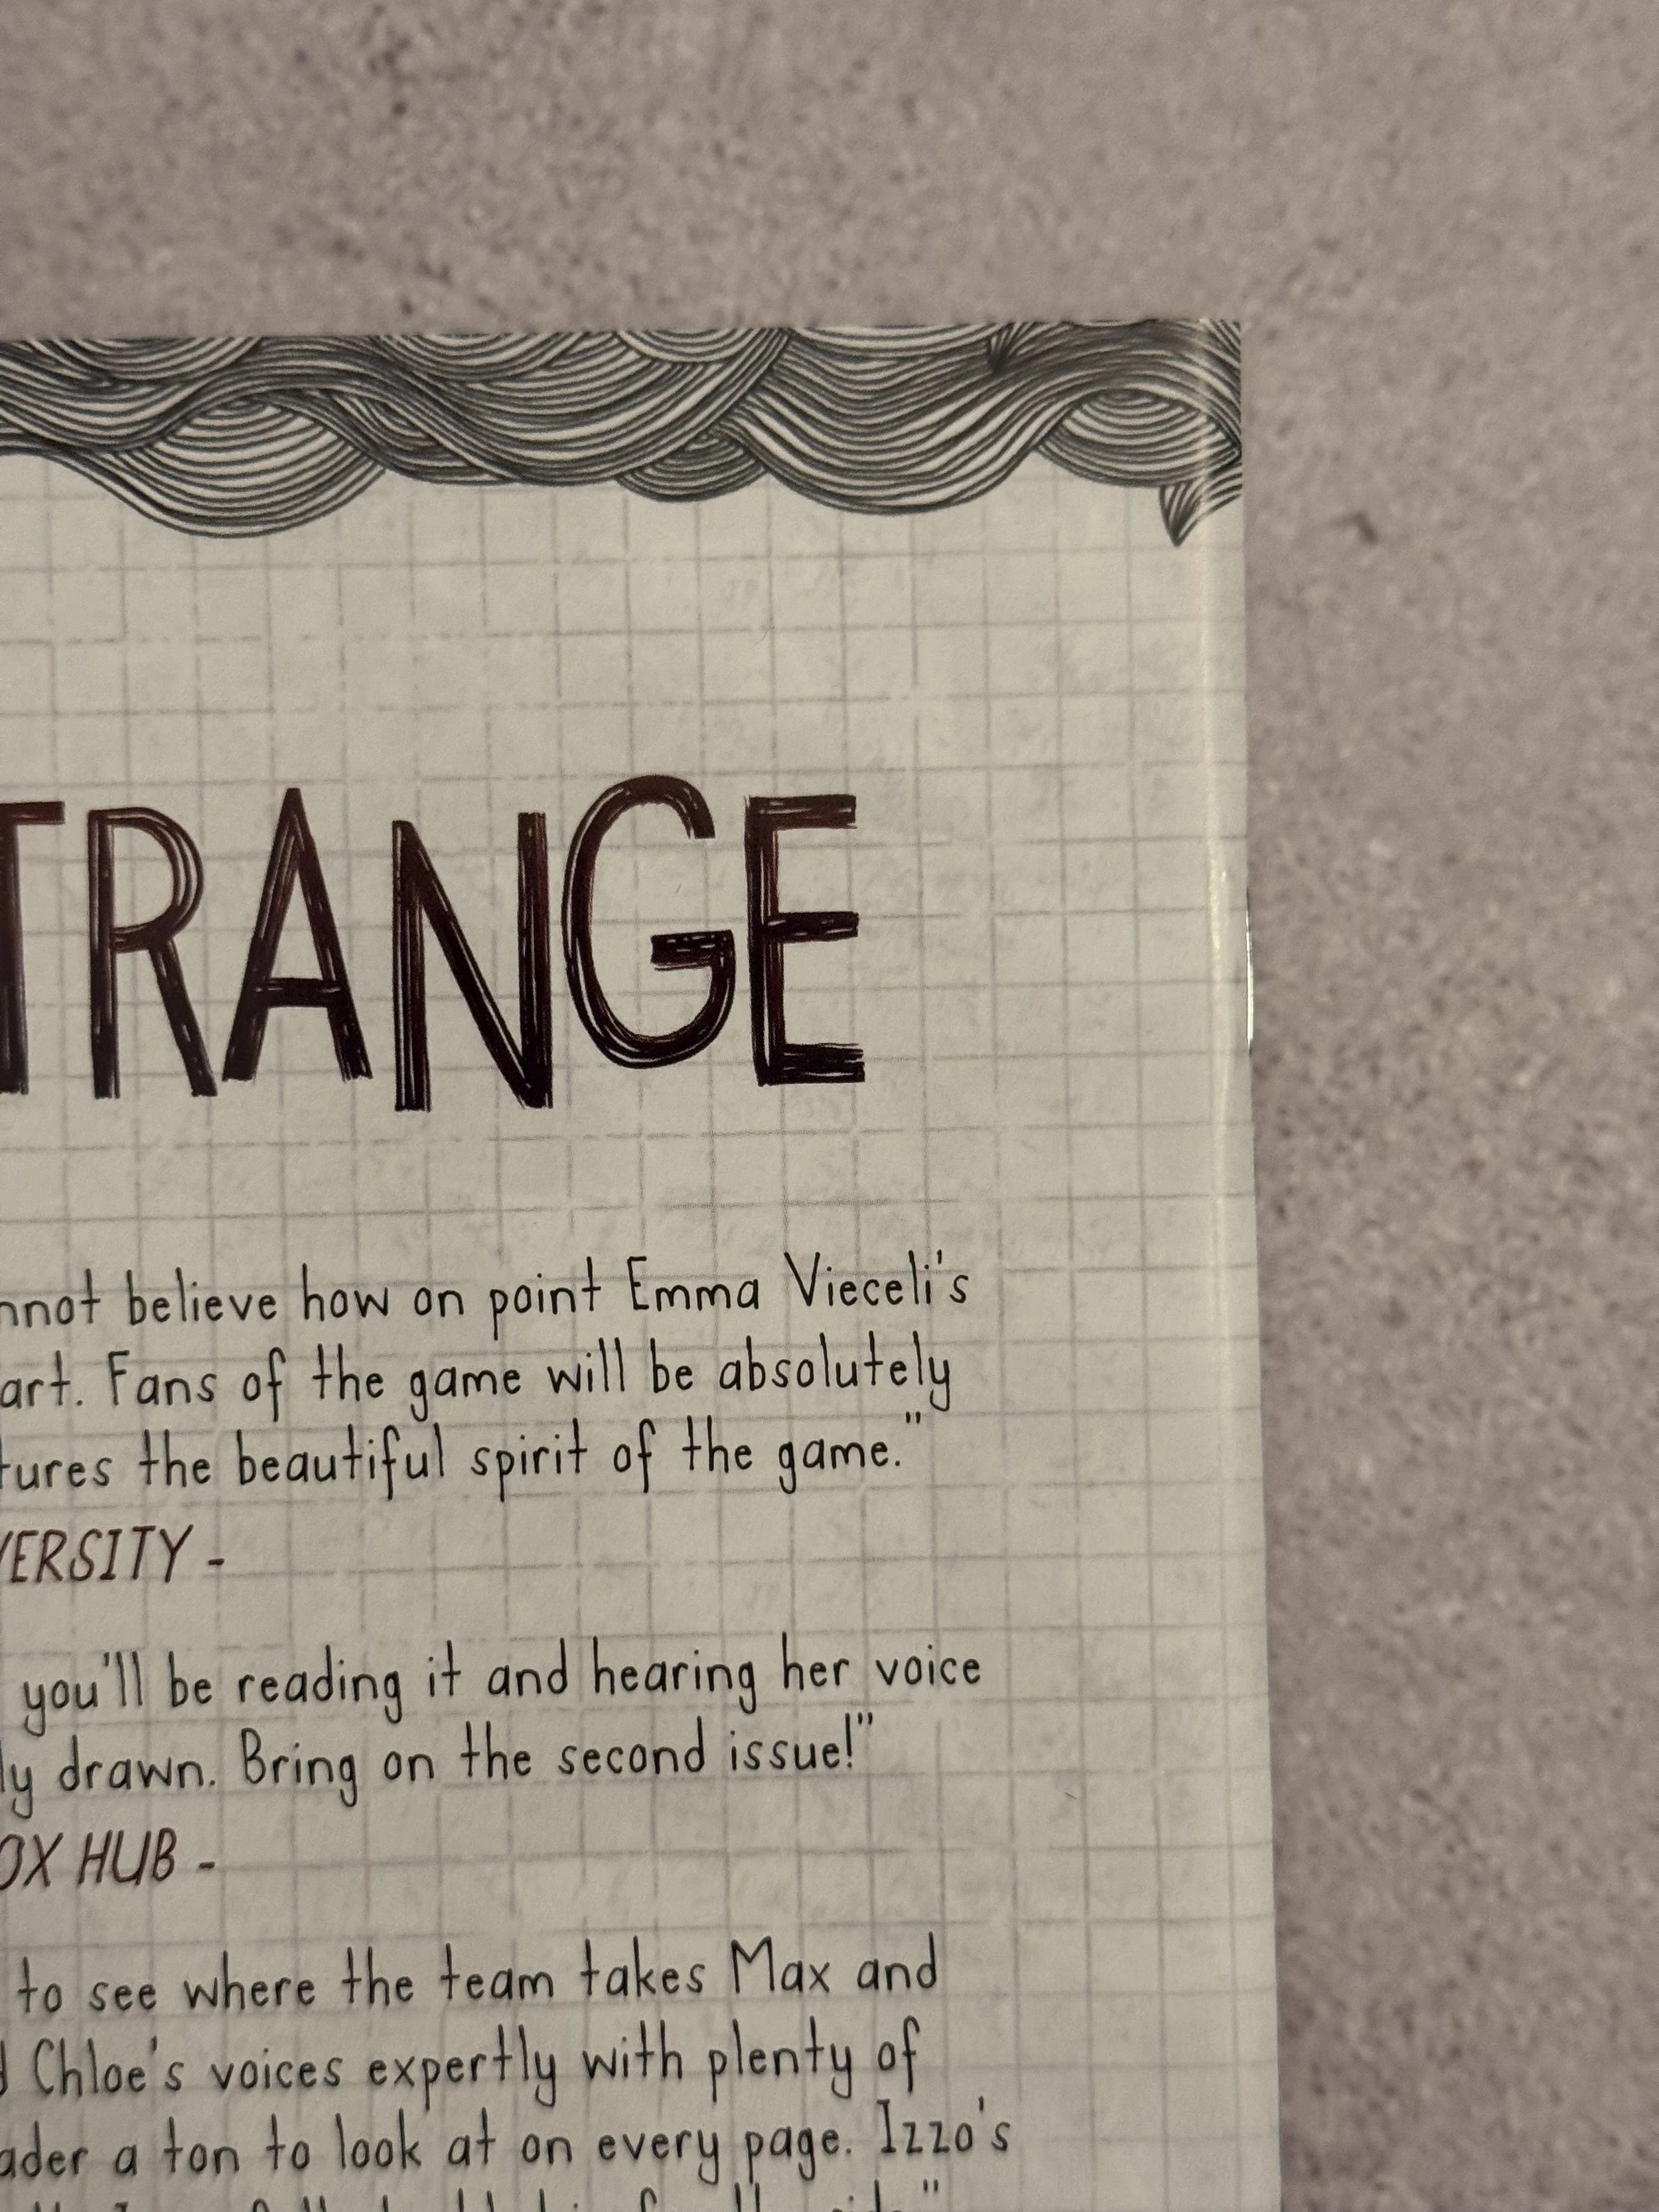 TRANGE
nnot believe how on point Emma Vieceli's
art. Fans of the game will be absolutely
tures the beautiful spirit of the game."
VERSITY -
you'll be reading it and hearing her voice
ly drawn. Bring on the second issue!"
OX HUB -
to see where the team takes Max and
d Chloe's voices expertly with plenty of
ader a ton to look at on every page. Izzo's